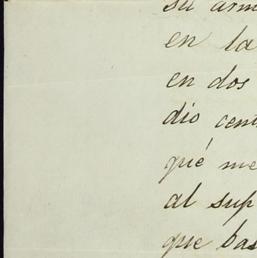 su arm
en la
en dos
dio cen
qué me
al sup
que bas